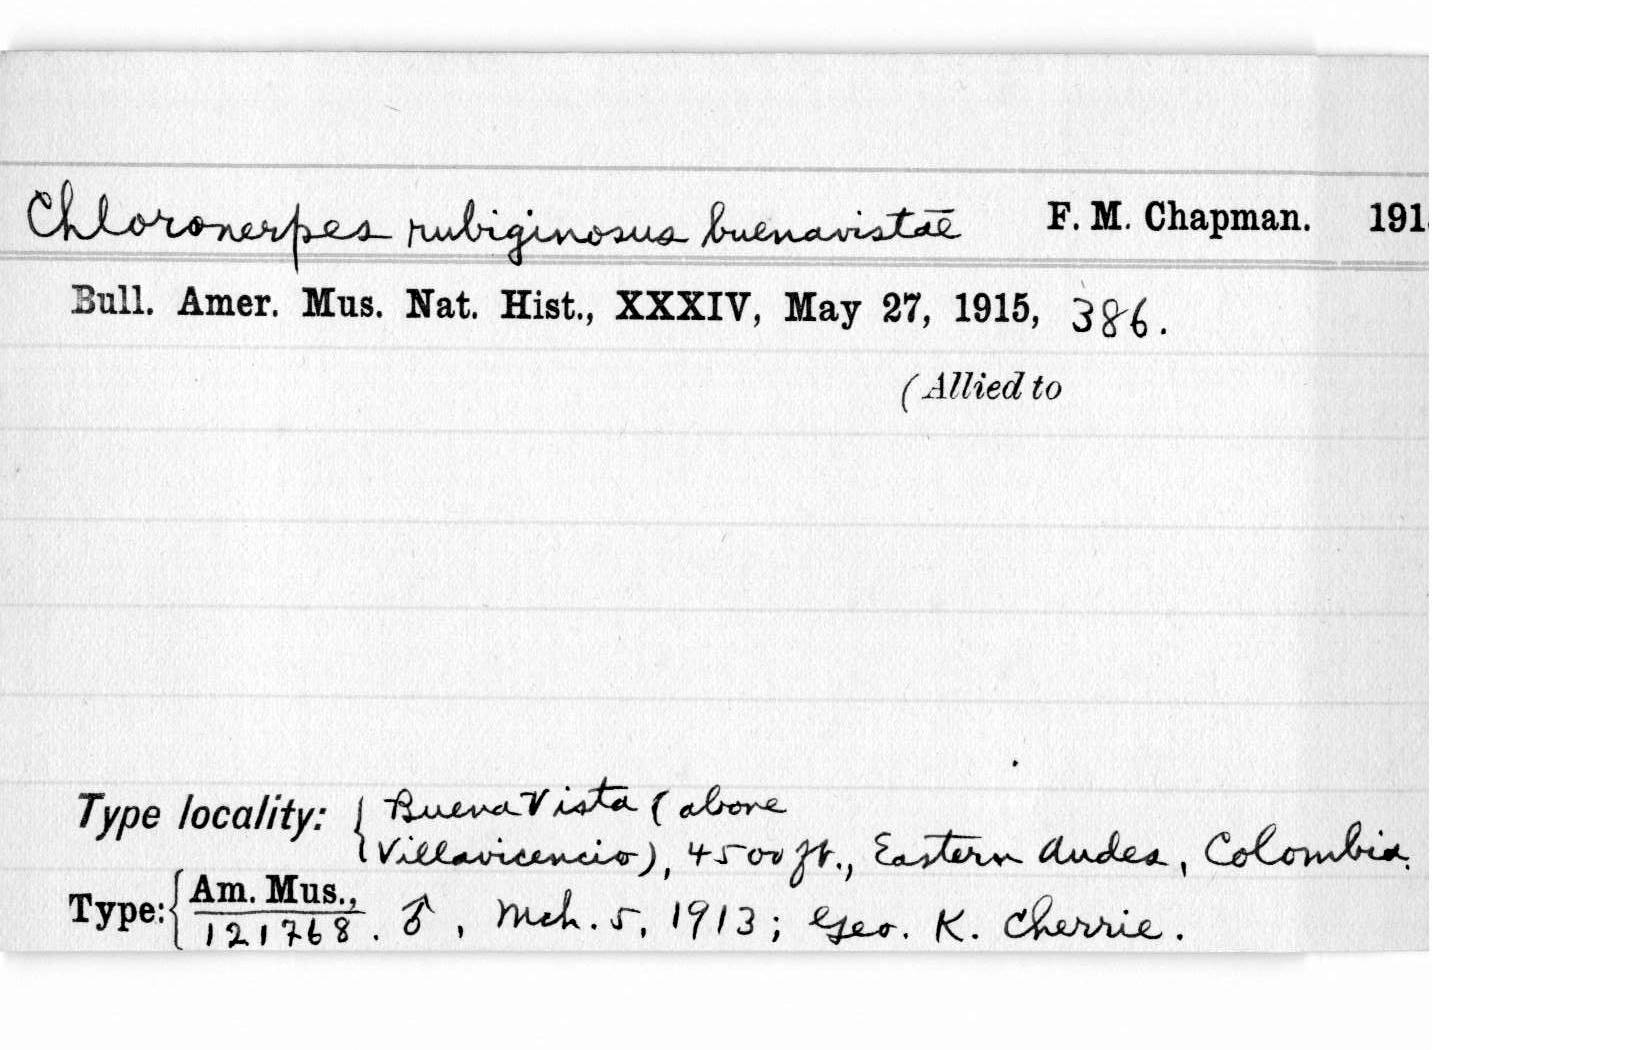 Chloronerpes rubiginosus buenavistæ F. M. Chapman. 191
Bull. Amer. Mus. Nat. Hist., XXXIV, May 27, 1915, 386.
(Allied to
Type locality: { Buena Vista (above
Villavicencio), 4500 ft., Eastern Andes, Colombia.
Type: { Am. Mus.,
121768. ♂, Mch. 5, 1913; Geo. K. Cherrie.